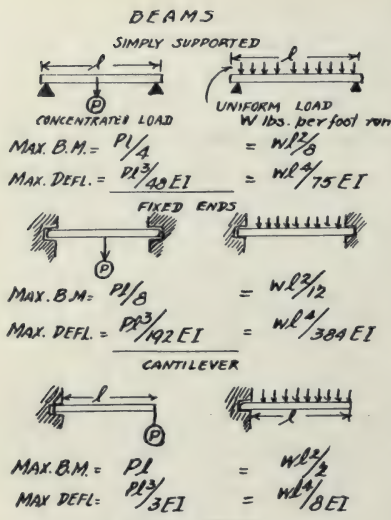 BEAMS
SIMPLY SUPPORTED
l l
P
CONCENTRATED LOAD UNIFORM LOAD
W lbs. per foot run
MAX. B.M. = Pl/4 = Wl²/8
MAX. DEFL. = Pl³/48 EI = Wl⁴/75 EI
FIXED ENDS
P
MAX. B.M = Pl/8 = Wl²/12
MAX. DEFL. = Pl³/192 EI = Wl⁴/384 EI
CANTILEVER
l
P l
MAX. B.M. = Pl = Wl²/2
MAX DEFL = Pl³/3EI = Wl⁴/8EI